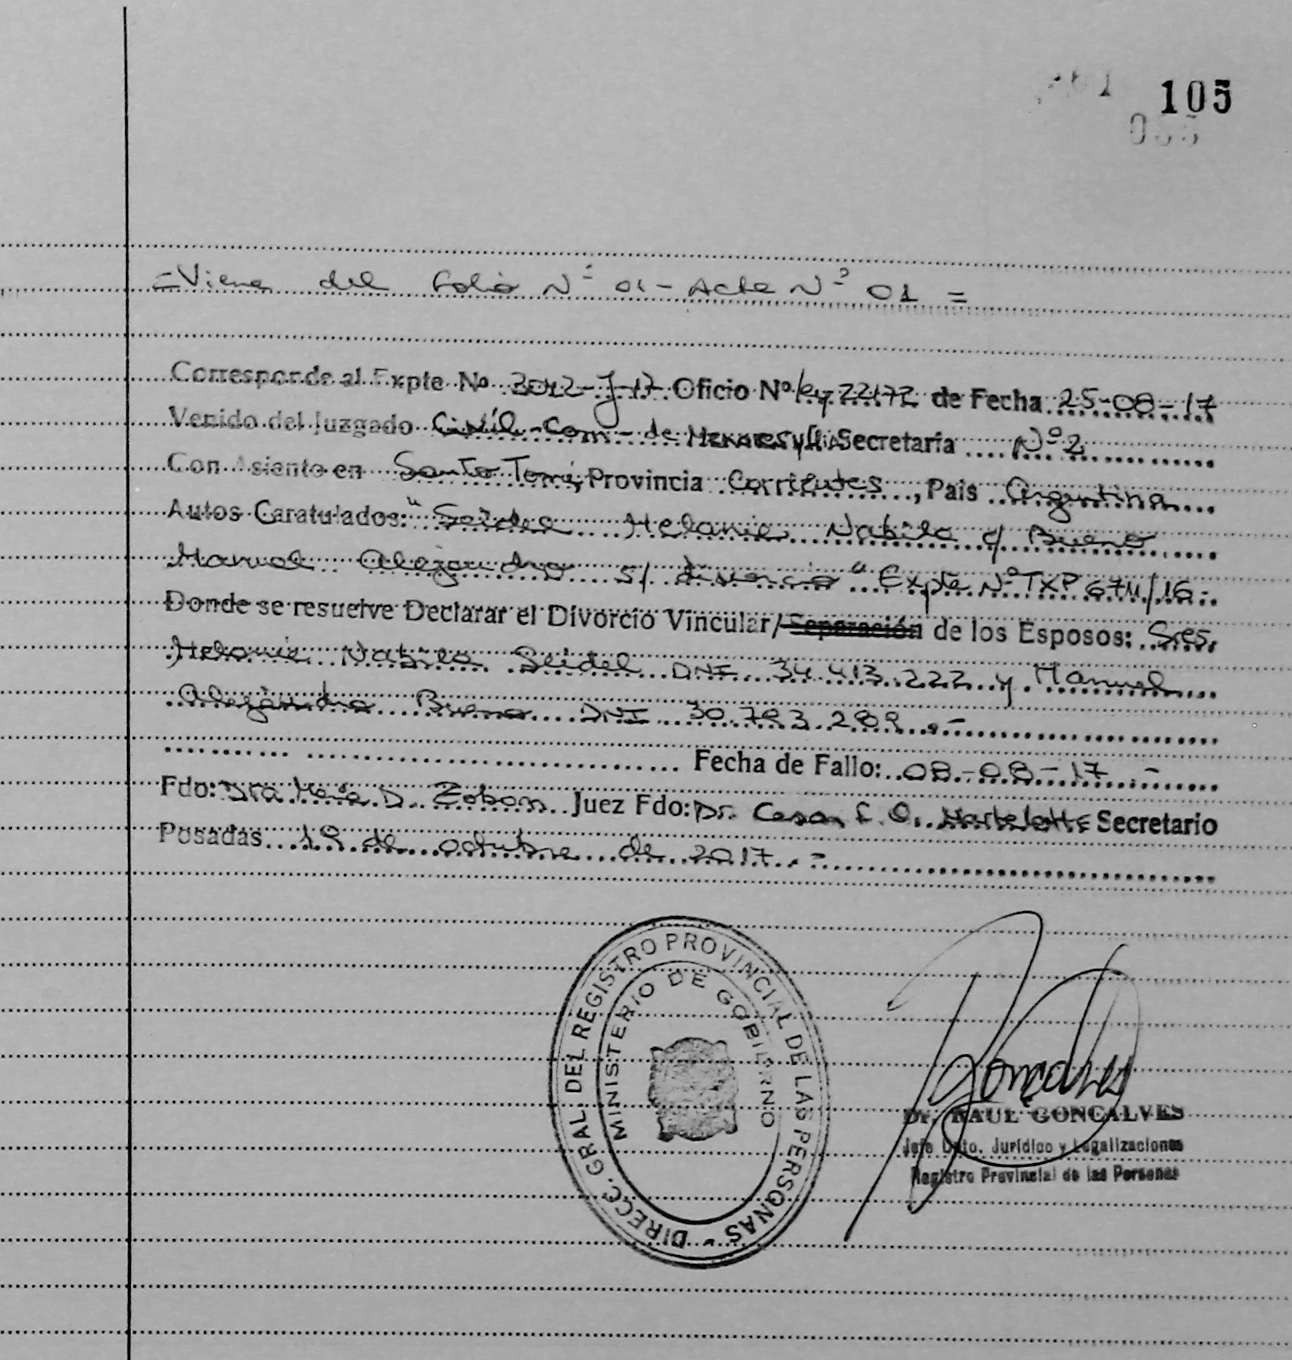 105
=Viene del Folio Nº 01 - Acta Nº 01 =
Corresponde al Expte Nº 3042-J-17 Oficio Nº Ley 22172 de Fecha 25-08-17
Venido del Juzgado Civil-Com- de Secretaría Nº 2
Con Asiento en Santo Tomé, Provincia Corrientes, Pais Argentina
Autos Caratulados: " Melanie Nabila c/ Bueno
Manuel Alejandro s/ divorcio" Expte Nº TXP 6711/16-
Donde se resuelve Declarar el Divorcio Vincular/Separación de los Esposos: Sres.
Melanie Nabila Seidel DNI 34.413.222 y Manuel
Alejandro Bueno DNI 30.793.289.-
Fecha de Fallo: 08-08-17.-
Fdo: Dra. D. Juez Fdo: Dr. Cesar Secretario
Posadas 19 de octubre de 2017.-
DIRECC. GRAL. DEL REGISTRO PROVINCIAL DE LAS PERSONAS
MINISTERIO DE GOBIERNO
Dr. RAUL GONCALVES
Jefe Dpto. Jurídico y Legalizaciones
Registro Provincial de las Personas